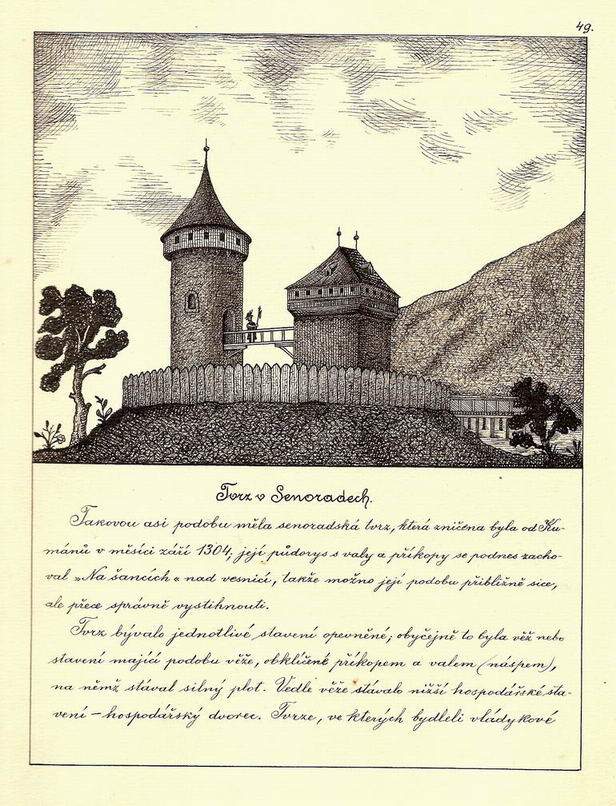 49.
Tvrz v Senoradech.
Takovou asi podobu měla senoradská tvrz, která zničena byla od Ku-
mánů v měsíci září 1304, její půdorys s valy a příkopy se podnes zacho-
val „Na šancích“ nad vesnicí, takže možno její podobu přibližně sice,
ale přece správně vystihnouti.
Tvrz bývalo jednotlivé stavení opevněné; obyčejně to byla věž nebo
stavení mající podobu věže, obklíčené příkopem a valem (náspem),
na němž stával silný plot. Vedle věže stávalo nižší hospodářské sta-
vení – hospodářský dvorec. Tvrze, ve kterých bydleli vládykové